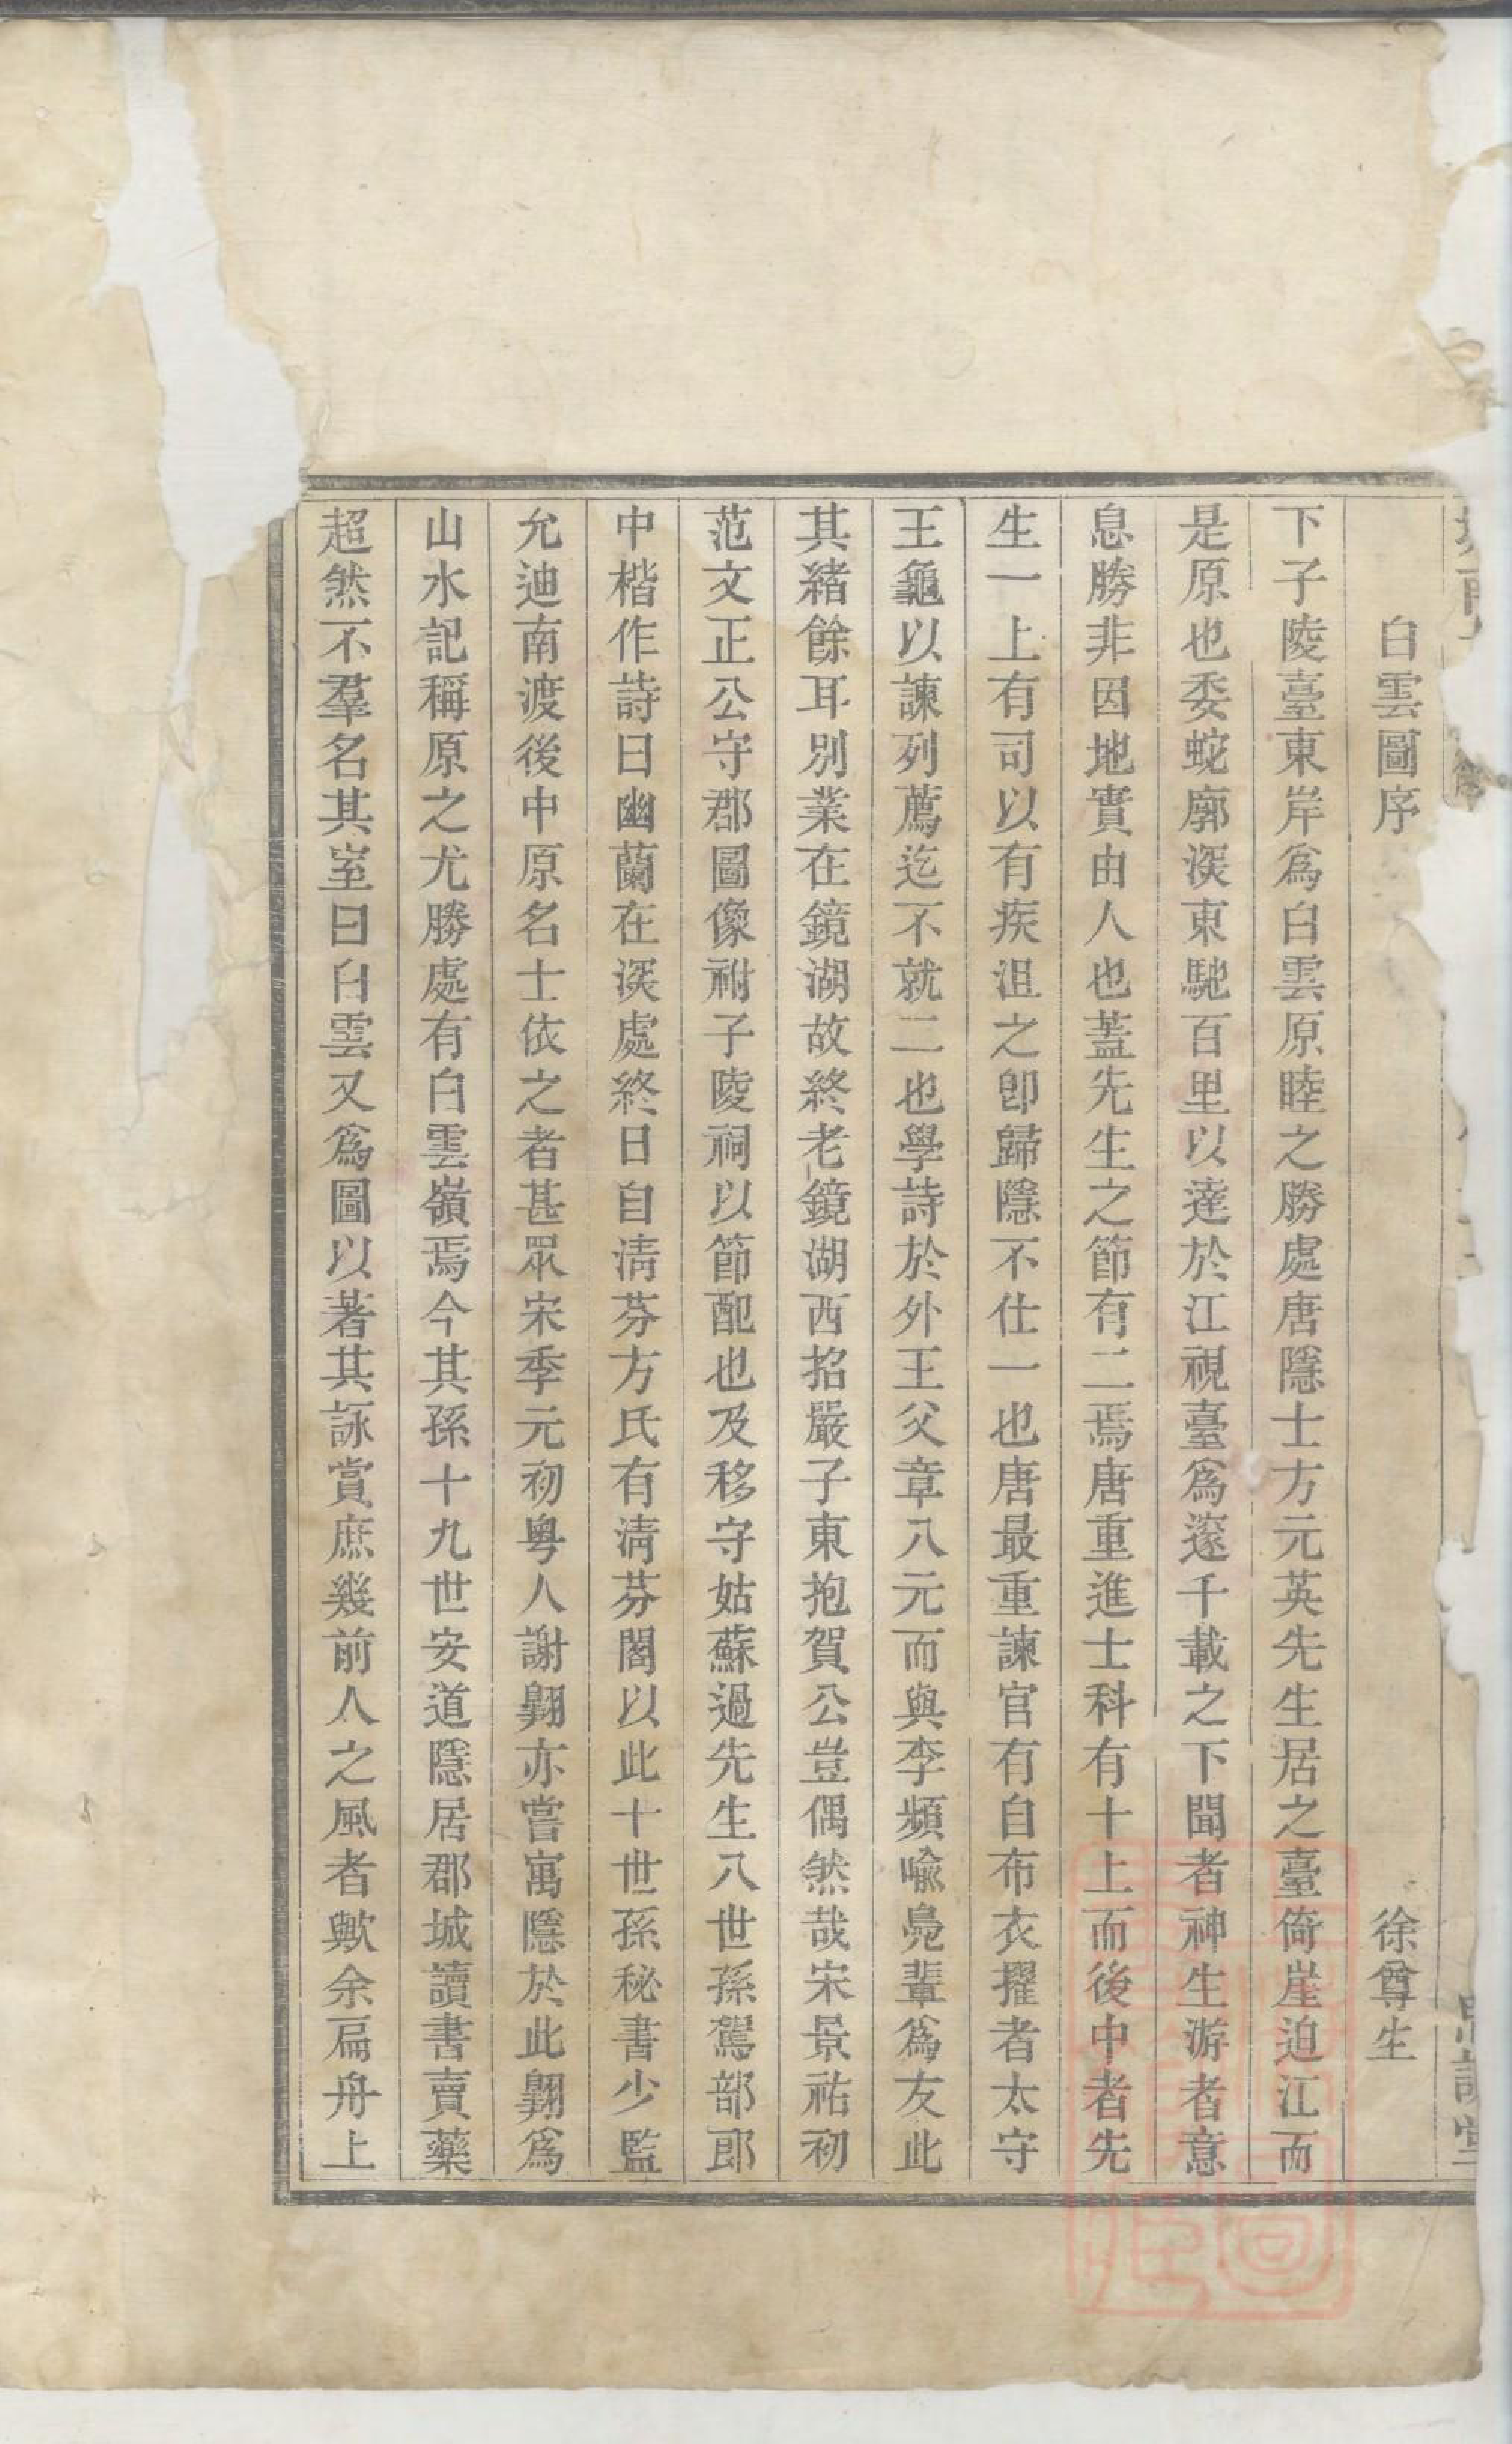 白雲圖序　徐尊生
下子陵臺東岸爲白雲原睦之勝處唐隱士方元英先生居之臺倚崖迫江而
是原也委蛇廓深東馳百里以達於江視臺爲邃千載之下聞者神生游者意
息勝非因地實由人也蓋先生之節有二焉唐重進士科有十上而後中者先
生一上有司以有疾沮之卽歸隱不仕一也唐最重諫官有自布衣擢者太守
王龜以諫列薦迄不就二也學詩於外王父章八元而與李頻喩鳧輩爲友此
其緒餘耳別業在鏡湖故終老鏡湖西招嚴子東抱賀公豈偶然哉宋景祐初
范文正公守郡圖像祔子陵祠以節配也及移守姑蘇過先生八世孫駕部郎
中楷作詩曰幽蘭在深處終日自清芬方氏有清芬閣以此十世孫秘書少監
允迪南渡後中原名士依之者甚眾宋季元初粵人謝翱亦嘗寓隱於此翱爲
山水記稱原之尤勝處有白雲嶺焉今其孫十九世安道隱居郡城讀書賣藥
超然不羣名其室曰白雲又爲圖以著其詠賞庶幾前人之風者歟余扁舟上